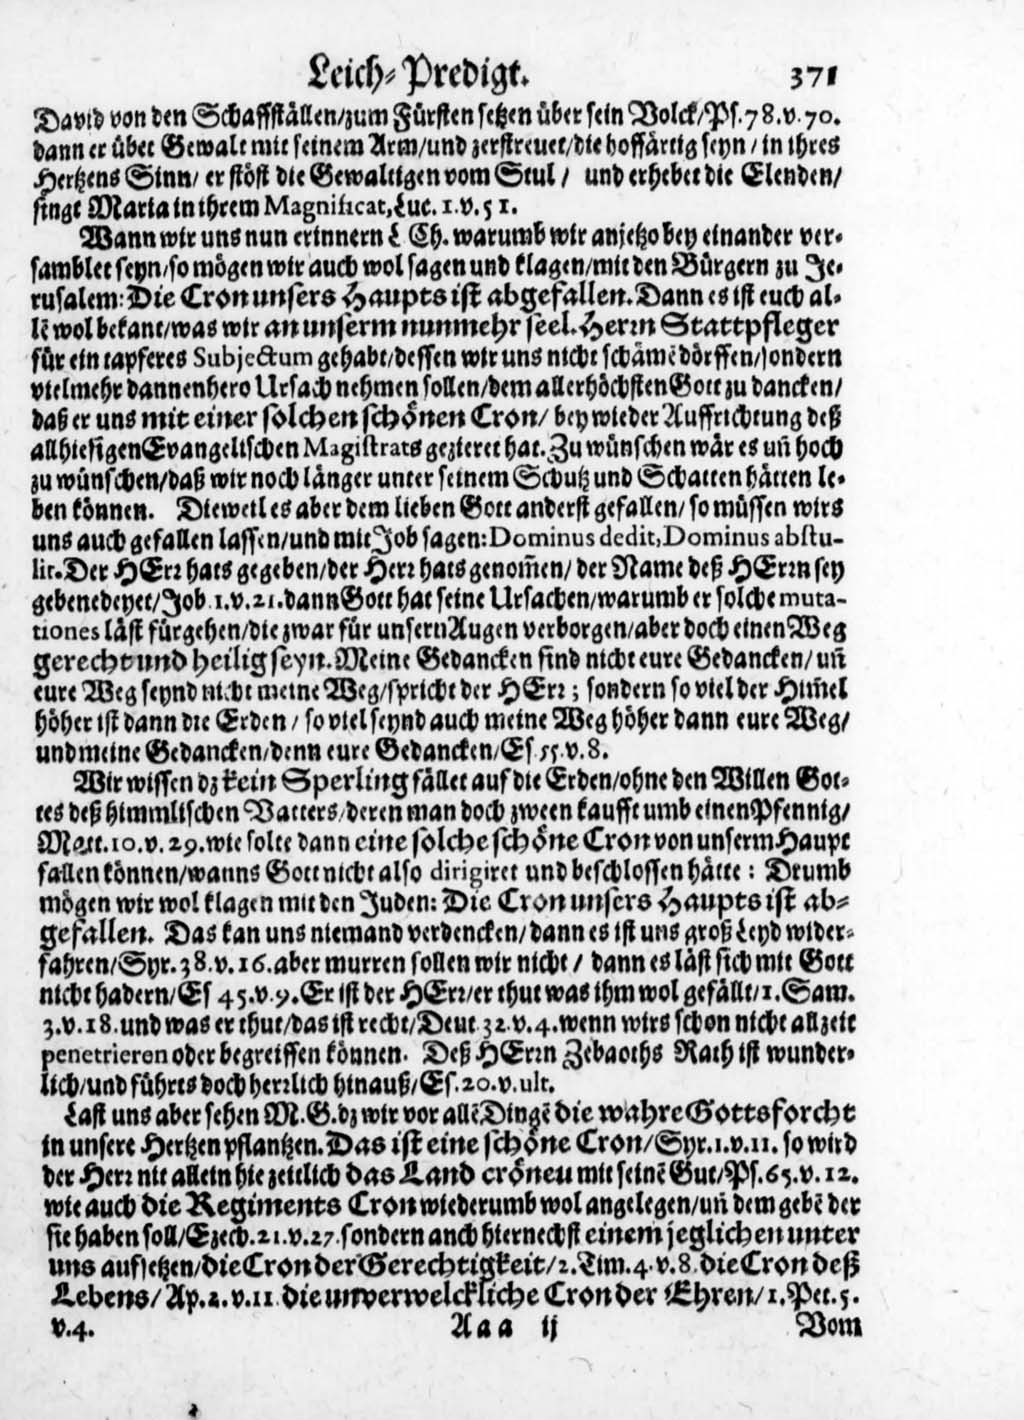 Leich-Predigt. 371
David von den Schaffställen/zum Fürsten setzen über sein Volck/Ps.78.v.70.
dann er übet Gewalt mit seinem Arm/und zerstreuet/die hoffärtig seyn/in ihres
Hertzens Sinn/ er stöst die Gewaltigen vom Stul / und erhebet die Elenden/
singt Maria in ihrem Magnificat,Luc. 1.v.51.
Wann wir uns nun erinnern L Ch. warumb wir anjetzo bey einander ver-
samblet seyn/so mögen wir auch wol sagen und klagen/mit den Bürgern zu Je-
rusalem: Die Cron unsers Haupts ist abgefallen. Dann es ist euch al-
lē wol bekant/was wir an unserm nunmehr seel. Herrn Stattpfleger
für ein tapferes Subjectum gehabt/dessen wir uns nicht schämē dörffen/sondern
vielmehr dannenhero Ursach nehmen sollen/dem allerhöchsten Gott zu dancken/
daß er uns mit einer solchen schönen Cron/ bey wieder Auffrichtung deß
allhiesigen Evangelischen Magistrats gezieret hat. Zu wünschen wär es uñ hoch
zu wünschen/daß wir noch länger unter seinem Schutz und Schatten hätten le-
ben können. Dieweil es aber dem lieben Gott anderst gefallen/ so müssen wirs
uns auch gefallen lassen/und mit Job sagen: Dominus dedit, Dominus abstu-
lit. Der HErr hats gegeben/der Herr hats genom̄en/ der Name deß HErrn sey
gebenedeyet/Job.1.v.21.dann Gott hat seine Ursachen/warumb er solche muta-
tiones läst fürgehen/die zwar für unsern Augen verborgen/aber doch einen Weg
gerecht und heilig seyn. Meine Gedancken sind nicht eure Gedancken/ uñ
eure Weg seynd nicht meine Weg/spricht der HErr; sondern so viel der Him̄el
höher ist dann die Erden / so viel seynd auch meine Weg höher dann eure Weg/
und meine Gedancken/denn eure Gedancken/Es.55.v.8.
Wir wissen dz kein Sperling fället auf die Erden/ohne den Willen Got-
tes deß himmlischen Vatters/deren man doch zween kaufft umb einen Pfennig/
Matt.10.v.29.wie solte dann eine solche schöne Cron von unserm Haupt
fallen können/wanns Gott nicht also dirigiret und beschlossen hätte: Drumb
mögen wir wol klagen mit den Juden: Die Cron unsers Haupts ist ab-
gefallen. Das kan uns niemand verdencken/dann es ist uns groß Leyd wider-
fahren/Syr.38.v.16.aber murren sollen wir nicht / dann es läst sich mit Gott
nicht hadern/Es 45.v.9.Er ist der HErr/er thut was ihm wol gefällt/1.Sam.
3.v.18.und was er thut/das ist recht/Deut.32.v.4.wenn wirs schon nicht allzeit
penetrieren oder begreiffen können. Deß HErrn Zebaoths Rath ist wunder-
lich/und führts doch herrlich hinauß/Es.20.v.ult.
Last uns aber sehen M.G.dz wir vor allē Dingē die wahre Gottsforcht
in unsere Hertzen pflantzen. Das ist eine schöne Cron/Syr.1.v.11. so wird
der Herr nit allein hie zeitlich das Land crönen mit seinē Gut/Ps.65.v.12.
wie auch die Regiments Cron wiederumb wol angelegen/uñ dem gebē der
sie haben soll/Ezech.21.v.27.sondern auch hiernechst einem jeglichen unter
uns aufsetzen/die Cron der Gerechtigkeit/2.Tim.4.v.8.die Cron deß
Lebens/Ap.2.v.11.die unverwelckliche Cron der Ehren/1.Pet.5.
v.4. Aaa ij Vom